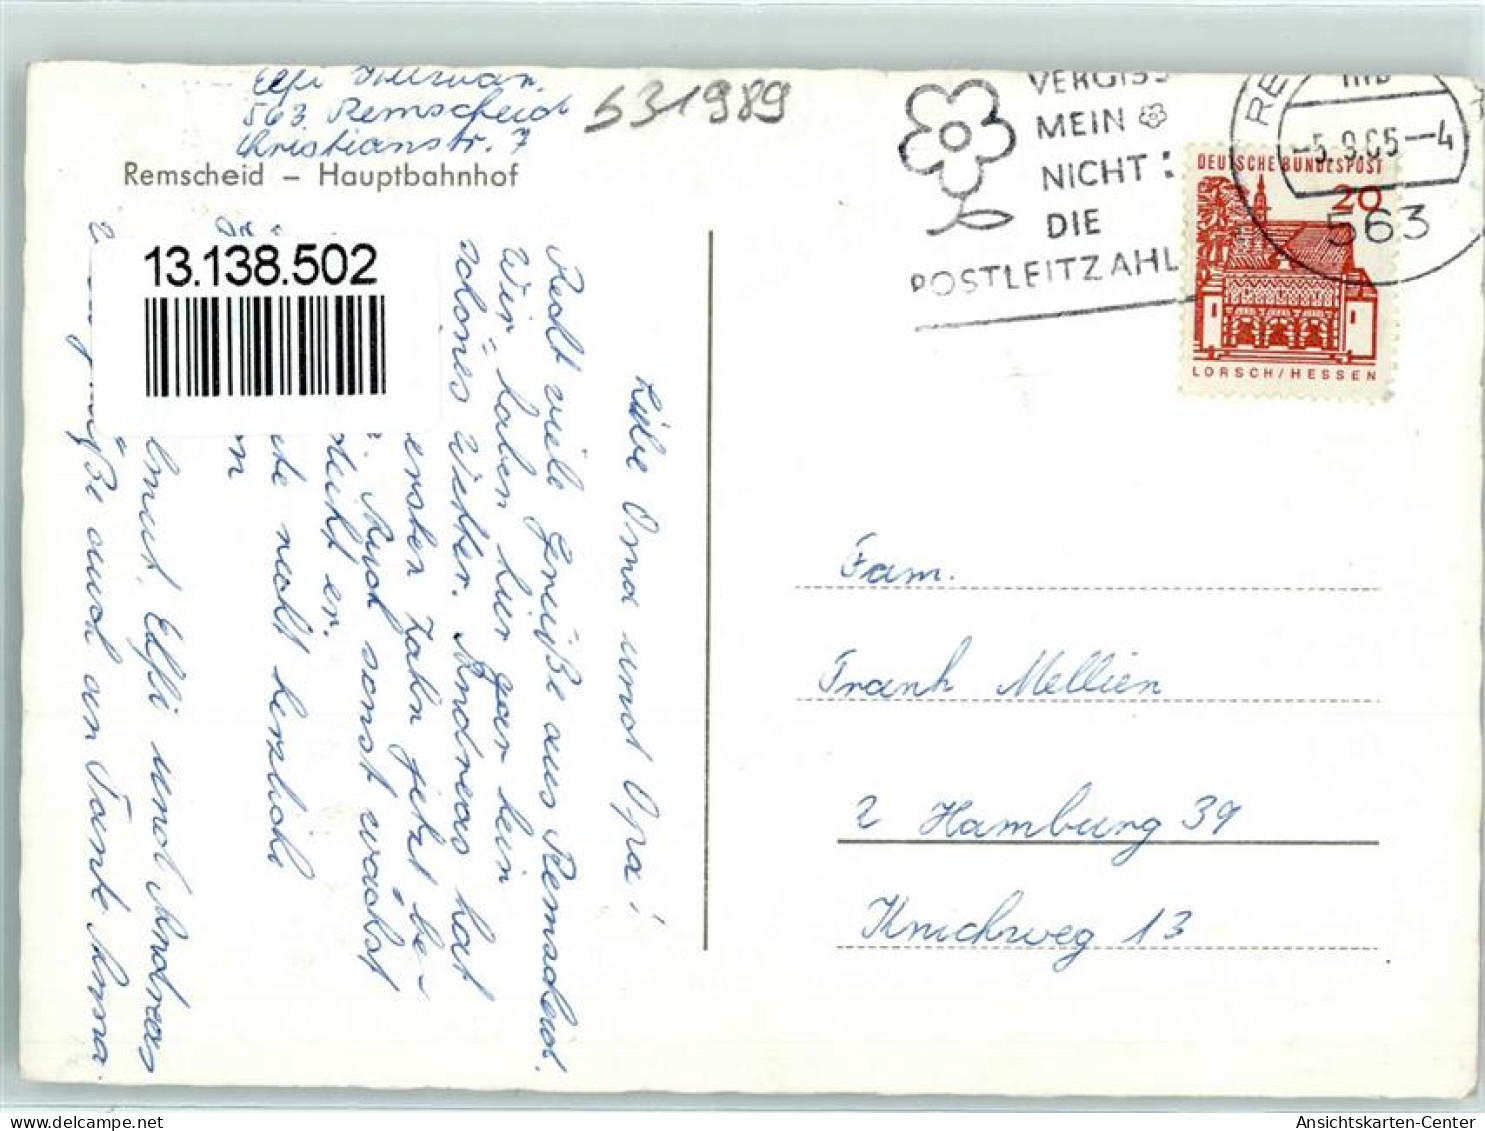 563 Remscheid
Christianstr. 7
Remscheid – Hauptbahnhof
531989
13.138.502
Liebe Oma und Opa!
Recht viele Grüße aus Remscheid.
Wir haben hier gar kein
schönes Wetter. Andreas hat
ersten Zahn jetzt be-
Auch sonst wächst
er.
nicht herzlich
Elfi und Andreas
Grüße auch an Tante Anna
VERGISS
MEIN
NICHT:
DIE
POSTLEITZAHL
-5.9.65--4
563
DEUTSCHE BUNDESPOST
20
LORSCH/HESSEN
Fam.
Frank Mellien
2 Hamburg 39
Knickweg 13
Ansichtskarten-Center